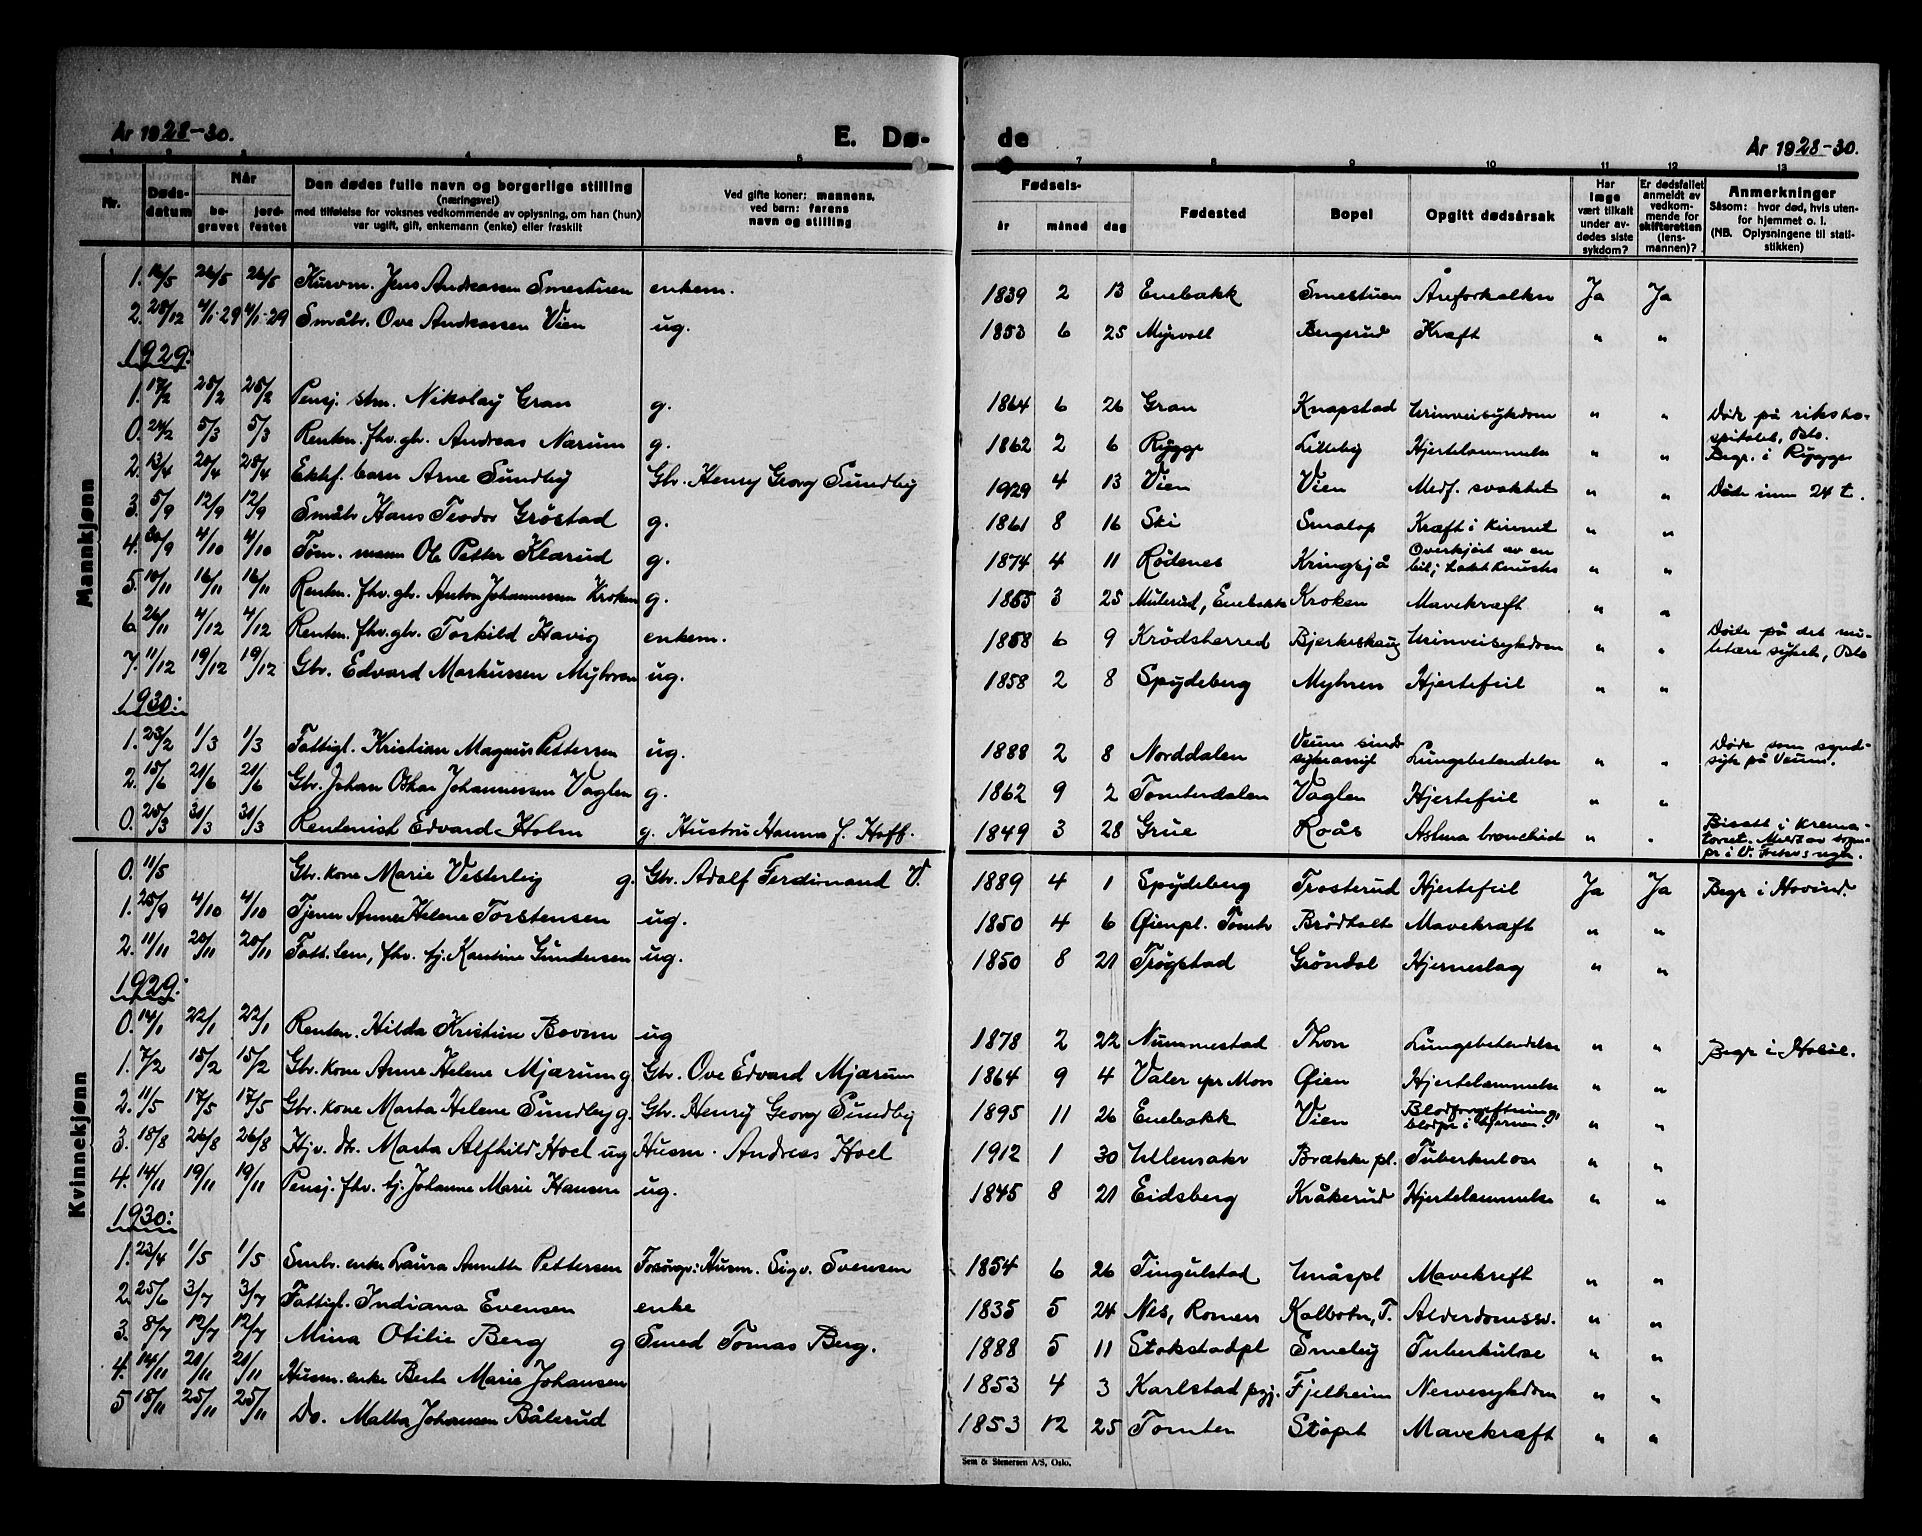 År 1928-30.
E. Dø-
de
År 1928-30.
Nr.
Døds-
datum
Når
be-
gravet
jord-
festet
Den dødes fulle navn og borgerlige stilling
(næringsvei)
med tilføielse for voksnes vedkommende av oplysning, om han (hun)
var ugift, gift, enkemann (enke) eller fraskilt
Ved gifte koner: mannens,
ved barn: farens
navn og stilling
Fødsels-
år måned dag
Fødested
Bopel
Opgitt dødsårsak
Har
læge
vært tilkalt
under av-
dødes siste
sykdom?
Er dødsfallet
anmeldt av
vedkom-
mende for
skifteretten
(lens-
mannen)?
Anmerkninger
Såsom: hvor død, hvis uten-
for hjemmet o. l.
(NB. Oplysningene til stati-
stikken)
Mannkjønn
1. 16/5 26/5 26/5 Kurvm. Jens Andreassen Smestuen enkem. 1839 2 13 Enebakk Smestuen Åreforkalkn Ja Ja
2. 28/12 4/1-29 4/1-29 Småbr. Ove Andreassen Vien ug. 1853 6 25 Myrvoll Bergerud Kræft " "
1929:
1. 17/2 25/2 25/2 Pensj. stm. Nikolay Gran g. 1864 6 26 Gran Knapstad Urinveisykdom " " Døde på riksho-
spitalet, Oslo.
0. 24/2 5/3 5/3 Renten. fhv. gbr. Andreas Narum g. 1862 2 6 Rygge Lilleby Hjertelammelse " " Begr. i Rygge
2. 13/4 20/4 28/4 Ektef. barn Arne Sundby Gbr. Henry Georg Sundby 1929 4 13 Vien Vien Medf. svakhet " " Døde inn 24 t.
3. 5/9 12/9 12/9 Småbr Hans Teodor Grøstad g. 1861 8 16 Ski Smalop Kræft i kinnet " "
4. 30/9 4/10 4/10 Tøm. mann Ole Petter Klærud g. 1874 4 11 Rødenes Kringsjå Overkjørt av en
bil; knustes " "
5. 10/11 16/11 16/11 Renten. fhv. gbr. Anton Johannessen Kroken g. 1855 3 25 Mulerud, Enebakk Kroken Mavekræft " "
6. 26/11 4/12 4/12 Renten. fhv. gbr. Torkild Havig enkem. 1858 6 9 Krødsherred Bjerkeskaug Urinveisykdom " " Døde på det mi-
litære sykeh, Oslo
7. 11/12 19/12 19/12 Gbr. Edvard Markussen Myhren ug. 1858 2 8 Spydeberg Myhren Hjertefeil " "
1930:
1. 23/2 1/3 1/3 Fattigl. Kristian Magnus Pettersen ug. 1888 2 8 Norddalen Veum sinds
sykeasyl Lungebetendelse " " Døde som synd-
syk på Veum.
2. 15/6 21/6 21/6 Gbr. Johan Oskar Johannessen Vaglen g. 1862 9 2 Tomterdalen Vaglen Hjertefeil " "
0. 25/3 31/3 31/3 Rentenist Edvard Holm g. Hustru Hanna f. Hoff. 1849 3 28 Grue Roås Astma bronchide " " Bisatt i krema-
toriet.
Kvinnekjønn
0. 11/5 Gbr. kone Marie Vesterleig g. Gbr. Adolf Ferdinand V. 1889 4 1 Spydeberg Trosterud Hjertefeil Ja Ja Begr i Hovind.
1. 25/9 4/10 4/10 Tjener Anne Helene Torstensen ug. 1850 4 6 Øienpl. Tomter Brødholt Mavekræft " "
2. 11/11 20/11 20/11 Fatt. lem, fhv. tj. Karoline Gundersen ug. 1850 8 21 Trøgstad Grøndal Hjerneslag " "
1929:
0. 14/1 22/1 22/1 Renten. Hilda Kristine Bovim ug 1878 2 22 Nummestad Thon Lungebetendelse " " Begr i Hobøl.
1. 7/2 15/2 15/2 Gbr. kone Anne Helene Mjærum g Gbr. Ove Edvard Mjærum 1864 9 4 Våler pr Moss Øien Hjertelammelse " "
2. 11/5 17/5 17/5 Gbr. kone Marta Helene Sundby g. Gbr. Henry Georg Sundby 1895 11 26 Enebakk Vien Blodforgiftning,
blodpr i hjernen. " "
3. 18/8 26/8 26/8 Hjv. dtr. Marta Alfhild Hoel ug Husm. Andreas Hoel 1912 1 30 Ullensaker Brække pl. Tuberkulose " "
4. 14/11 19/11 19/11 Pensj. fhv. tj. Johanne Marie Hansen ug. 1845 8 21 Eidsberg Kråkerud Hjertelammelse " "
1930:
1. 23/4 1/5 1/5 Smbr. enke Laura Annette Pettersen Forsørg.: Husm. Sigv. Svensen 1854 6 26 Tingulstad Unåspl Mavekreft " "
2. 25/6 3/7 3/7 Fattigl. Indiana Evensen enke 1835 5 24 Nes, Romer. Kolbotn, T. Alderdomssv. " "
3. 8/7 12/7 12/7 Mina Otilie Berg g Smed Tomas Berg. 1888 5 11 Stokstadpl Smeby Tuberkulose " "
4. 14/11 20/11 20/11 Husm. enke Berte Marie Johansen 1853 4 3 Karlstad pgj. Fjelheim Nervesykdom " "
5 18/11 25/11 25/11 Do. Matha Johansen Bålerud 1853 12 25 Tomter Støpet Mavekræft " "
Sem & Stenersen A/S, Oslo.